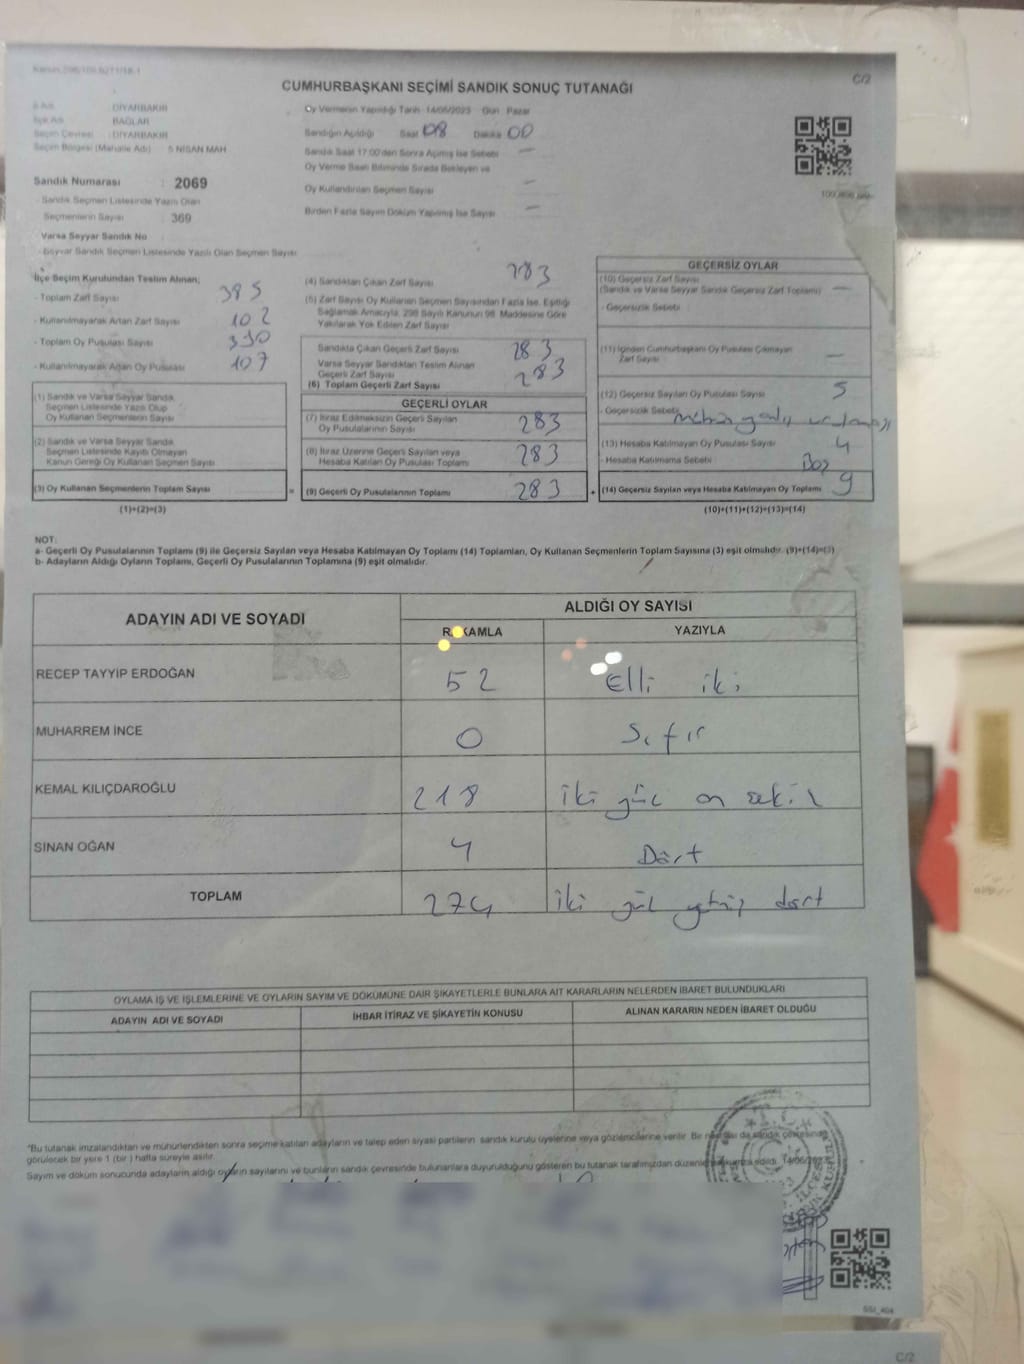 C/2
CUMHURBAŞKANI SEÇİMİ SANDIK SONUÇ TUTANAĞI
İl Adı : DİYARBAKIR
İlçe Adı : BAĞLAR
Seçim Çevresi : DİYARBAKIR
Seçim Bölgesi (Mahalle Adı) 5 NİSAN MAH
Sandık Numarası : 2069
- Sandık Seçmen Listesinde Yazılı Olan
Seçmenlerin Sayısı : 369
Varsa Seyyar Sandık No
- Seyyar Sandık Seçmen Listesinde Yazılı Olan Seçmen Sayısı
Oy Vermenin Yapıldığı Tarih 14/05/2023 Gün Pazar
Sandığın Açıldığı Saat 08 Dakika 00
Sandık Saat 17:00'den Sonra Açımış İse Sebebi —
Oy Verme Saati Bitiminde Sırada Bekleyen ve
Oy Kullandırılan Seçmen Sayısı —
Birden Fazla Sayım Döküm Yapılmış İse Sayısı —
İlçe Seçim Kurulundan Teslim Alınan;
- Toplam Zarf Sayısı 385
- Kullanılmayarak Artan Zarf Sayısı 102
- Toplam Oy Pusulası Sayısı 390
- Kullanılmayarak Artan Oy Pusulası 107
(1) Sandık ve Varsa Seyyar Sandık
Seçmen Listesinde Yazılı Olup
Oy Kullanan Seçmenlerin Sayısı
(2) Sandık ve Varsa Seyyar Sandık
Seçmen Listesinde Kayıtlı Olmayan
Kanun Gereği Oy Kullanan Seçmen Sayısı
(3) Oy Kullanan Seçmenlerin Toplam Sayısı =
(1)+(2)=(3)
(4) Sandıktan Çıkan Zarf Sayısı 283
(5) Zarf Sayısı Oy Kullanan Seçmen Sayısından Fazla İse, Eşitliği
Sağlamak Amacıyla, 298 Sayılı Kanunun 98. Maddesine Göre
Yakılarak Yok Edilen Zarf Sayısı
Sandıkta Çıkan Geçerli Zarf Sayısı 283
Varsa Seyyar Sandıktan Teslim Alınan
Geçerli Zarf Sayısı 283
(6) Toplam Geçerli Zarf Sayısı
GEÇERLİ OYLAR
(7) İtiraz Edilmeksizin Geçerli Sayılan
Oy Pusulalarının Sayısı 283
(8) İtiraz Üzerine Geçerli Sayılan veya
Hesaba Katılan Oy Pusulası Toplamı 283
(9) Geçerli Oy Pusulalarının Toplamı 283 +
GEÇERSİZ OYLAR
(10) Geçersiz Zarf Sayısı
(Sandık ve Varsa Seyyar Sandık Geçersiz Zarf Toplamı) —
- Geçersizlik Sebebi
(11) İçinden Cumhurbaşkanı Oy Pusulası Çıkmayan
Zarf Sayısı —
(12) Geçersiz Sayılan Oy Pusulası Sayısı 5
- Geçersizlik Sebebi
(13) Hesaba Katılmayan Oy Pusulası Sayısı 4
- Hesaba Katılmama Sebebi Boş
(14) Geçersiz Sayılan veya Hesaba Katılmayan Oy Toplamı 9
(10)+(11)+(12)+(13)=(14)
NOT:
a- Geçerli Oy Pusulalarının Toplamı (9) ile Geçersiz Sayılan veya Hesaba Katılmayan Oy Toplamı (14) Toplamları, Oy Kullanan Seçmenlerin Toplam Sayısına (3) eşit olmalıdır. (9)+(14)=(3)
b- Adayların Aldığı Oyların Toplamı, Geçerli Oy Pusulalarının Toplamına (9) eşit olmalıdır.
ADAYIN ADI VE SOYADI ALDIĞI OY SAYISI
RAKAMLA YAZIYLA
RECEP TAYYİP ERDOĞAN 52 Elli iki
MUHARREM İNCE 0 Sıfır
KEMAL KILIÇDAROĞLU 218 iki yüz on sekiz
SİNAN OĞAN 4 Dört
TOPLAM 274 iki yüz yetmiş dört
OYLAMA İŞ VE İŞLEMLERİNE VE OYLARIN SAYIM VE DÖKÜMÜNE DAİR ŞİKAYETLERLE BUNLARA AİT KARARLARIN NELERDEN İBARET BULUNDUKLARI
ADAYIN ADI VE SOYADI İHBAR İTİRAZ VE ŞİKAYETİN KONUSU ALINAN KARARIN NEDEN İBARET OLDUĞU
"Bu tutanak imzalandıktan ve mühürlendikten sonra seçime katılan adayların ve talep eden siyasi partilerin sandık kurulu üyelerine veya gözlemcilerine verilir. Bir
görülecek bir yere 1 (bir) hafta süreyle asılır.
Sayım ve döküm sonucunda adayların aldığı oyların sayılarını ve bunların sandık çevresinde bulunanlara duyurulduğunu gösteren bu tutanak tarafımızdan
C/2